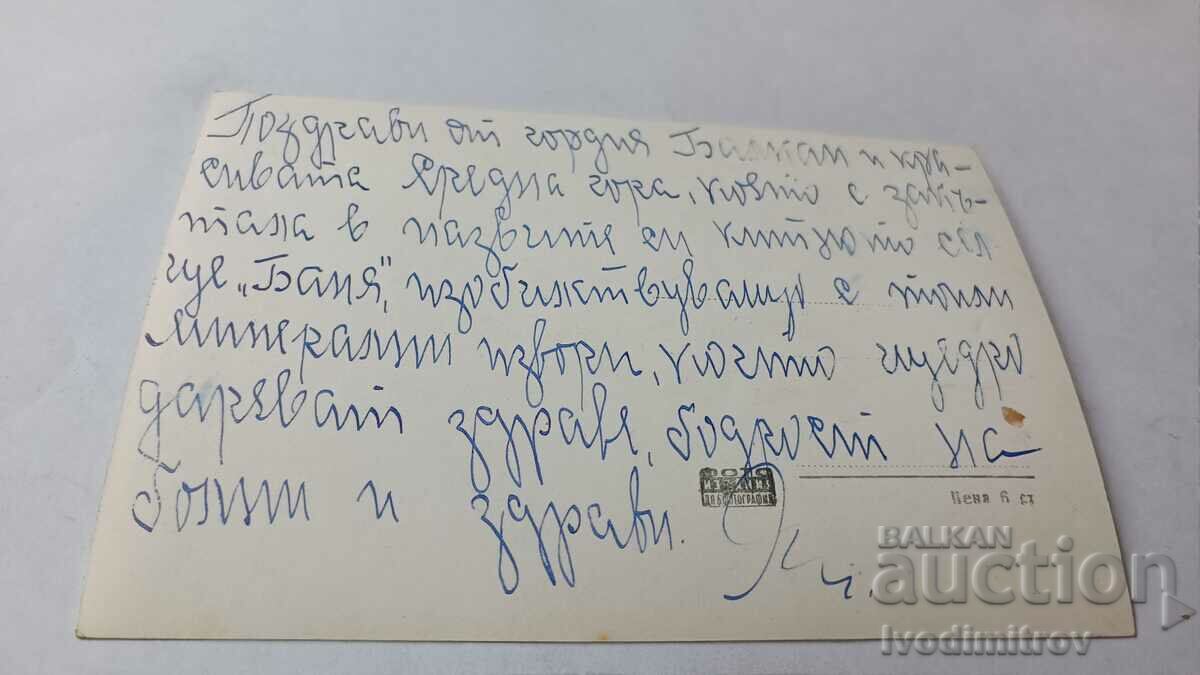 Поздрави от гордия Балкан и кра-
сивата Средна гора, която е закъ-
тала в пазвите си китното сел
це „Баня“, изобилствуващо с топли
минерални извори, които щедро
даряват здраве, бодрост на
болни и здрави.
ФОТО
ИЗДАНИЕ
ДПБЪЛГ.ФОТОГРАФИЯ
Цена 6 ст
BALKAN
auction
Ivodimitrov